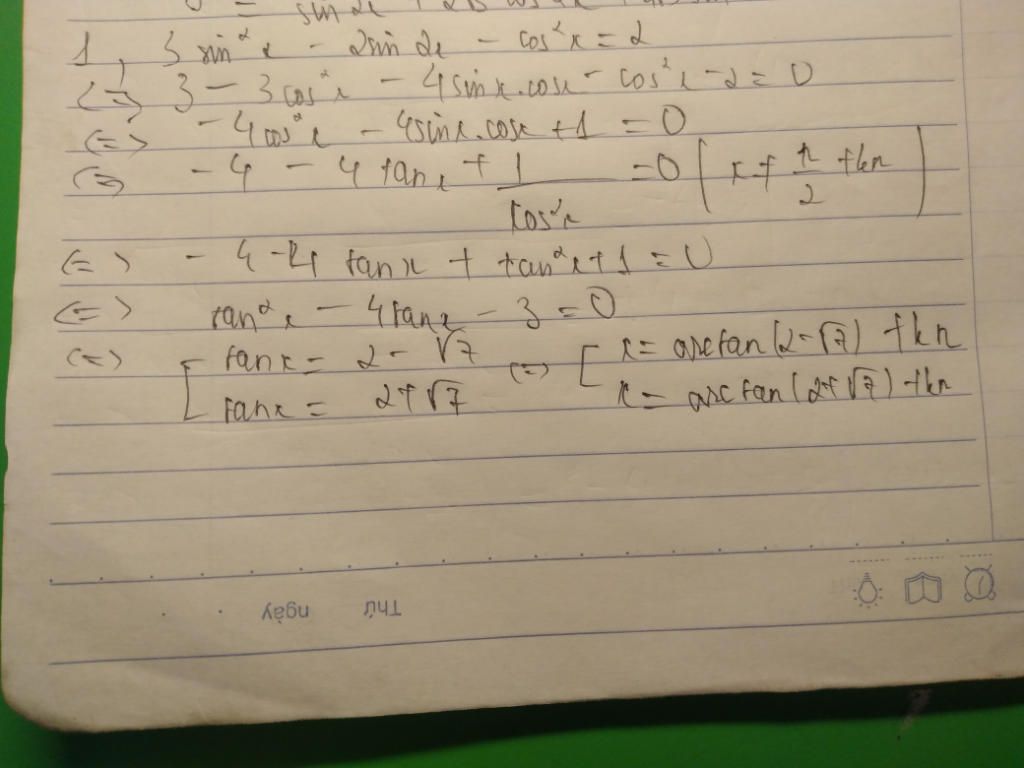 = sin 2x + 2
1, 3 sin²x - 2sin 2x - cos²x = 2
<=> 3 - 3cos²x - 4sinx.cosx - cos²x - 2 = 0
<=> -4cos²x - 4sinx.cosx + 1 = 0
<=> -4 - 4 tanx + 1/cos²x = 0 (x ≠ π/2 + kπ)
<=> -4 - 4 tanx + tan²x + 1 = 0
<=> tan²x - 4tanx - 3 = 0
<=> [ tanx = 2 - √7 <=> [ x = arctan(2-√7) + kπ
tanx = 2 + √7 x = arctan(2+√7) + kπ
Thứ ngày